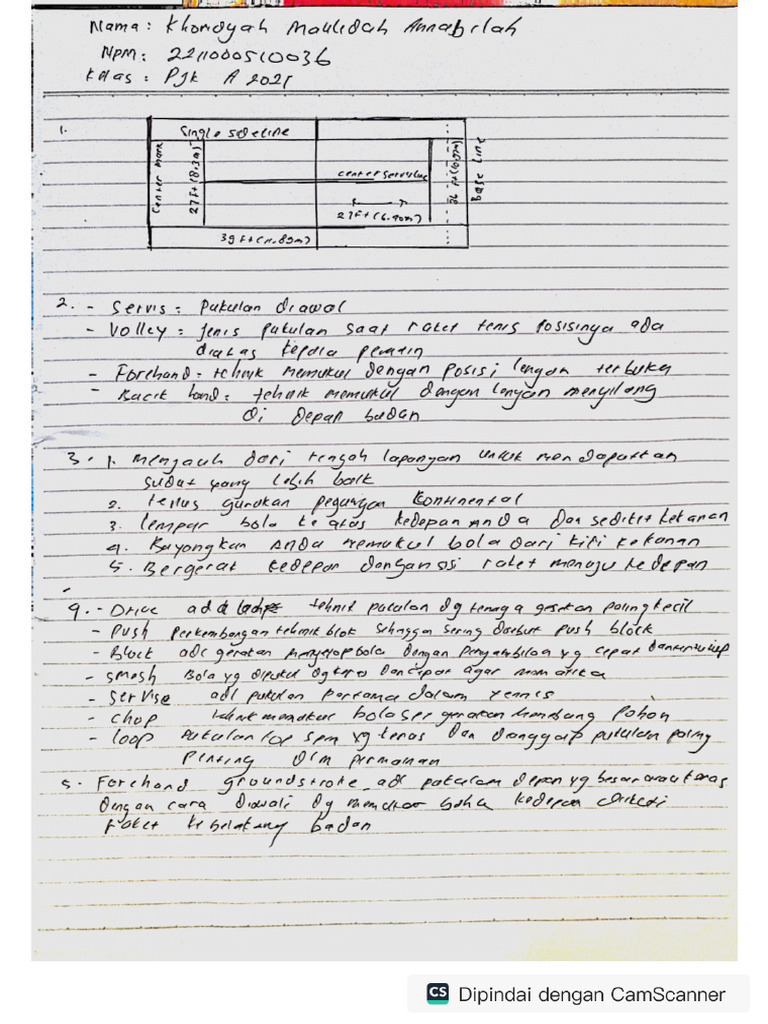 Nama : Khoridyah Maulidah Annabilah
Npm : 2211000510036
Kelas : PJK A 2021
1.
Single sideline
Center mark
27 Ft (8.3m)
center servis line
27 Ft (6.40m)
36 Ft (10.97m)
Base line
39 Ft (11.89m)
2. - Servis : Pukulan diawal
- Volley : Jenis pukulan saat raket tenis posisinya ada
diatas kepala pemain
- Forehand : tehnik memukul dengan posisi lengan terbuka
- Back hand : tehnik memukul dengan lengan menyilang
di depan badan
3. 1. Menjauh dari tengah lapangan untuk mendapatkan
sudut yang lebih baik
2. terus gunakan pegangan Kontinental
3. lempar bola ke atas kedepan Anda dan sedikit kekanan
4. Bayangkan Anda memukul bola dari kiri kekanan
5. Bergerak kedepan dengan sisi raket menuju kedepan
4. - Drive adl tehnik pukulan dg tenaga gesekan paling kecil
- Push Perkembangan tehnik blok sehingga sering disebut push block
- Block adl gerakan menyetop bola dengan pengambilan yg cepat dan
- Smash Bola yg dipukul dg keras dan cepat agar mematika
- Servise adl pukulan pertama dalam tennis
- Chop tehnik memukul bola gerakan menebang pohon
- loop pukulan top spin yg keras dan dianggap pukulan paling
penting dlm permainan
5. Forehand groundstroke adl pukulan depan yg besar atau keras
dengan cara diawali dg memutar bahu kedepan
raket kebelakang badan
CS Dipindai dengan CamScanner